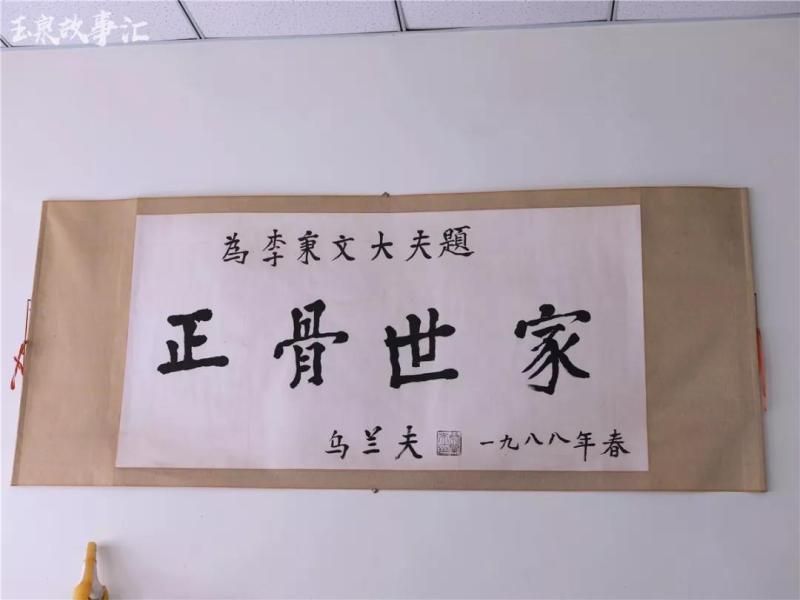 玉泉故事汇
為李秉文大夫題
正骨世家
乌兰夫 一九八八年春